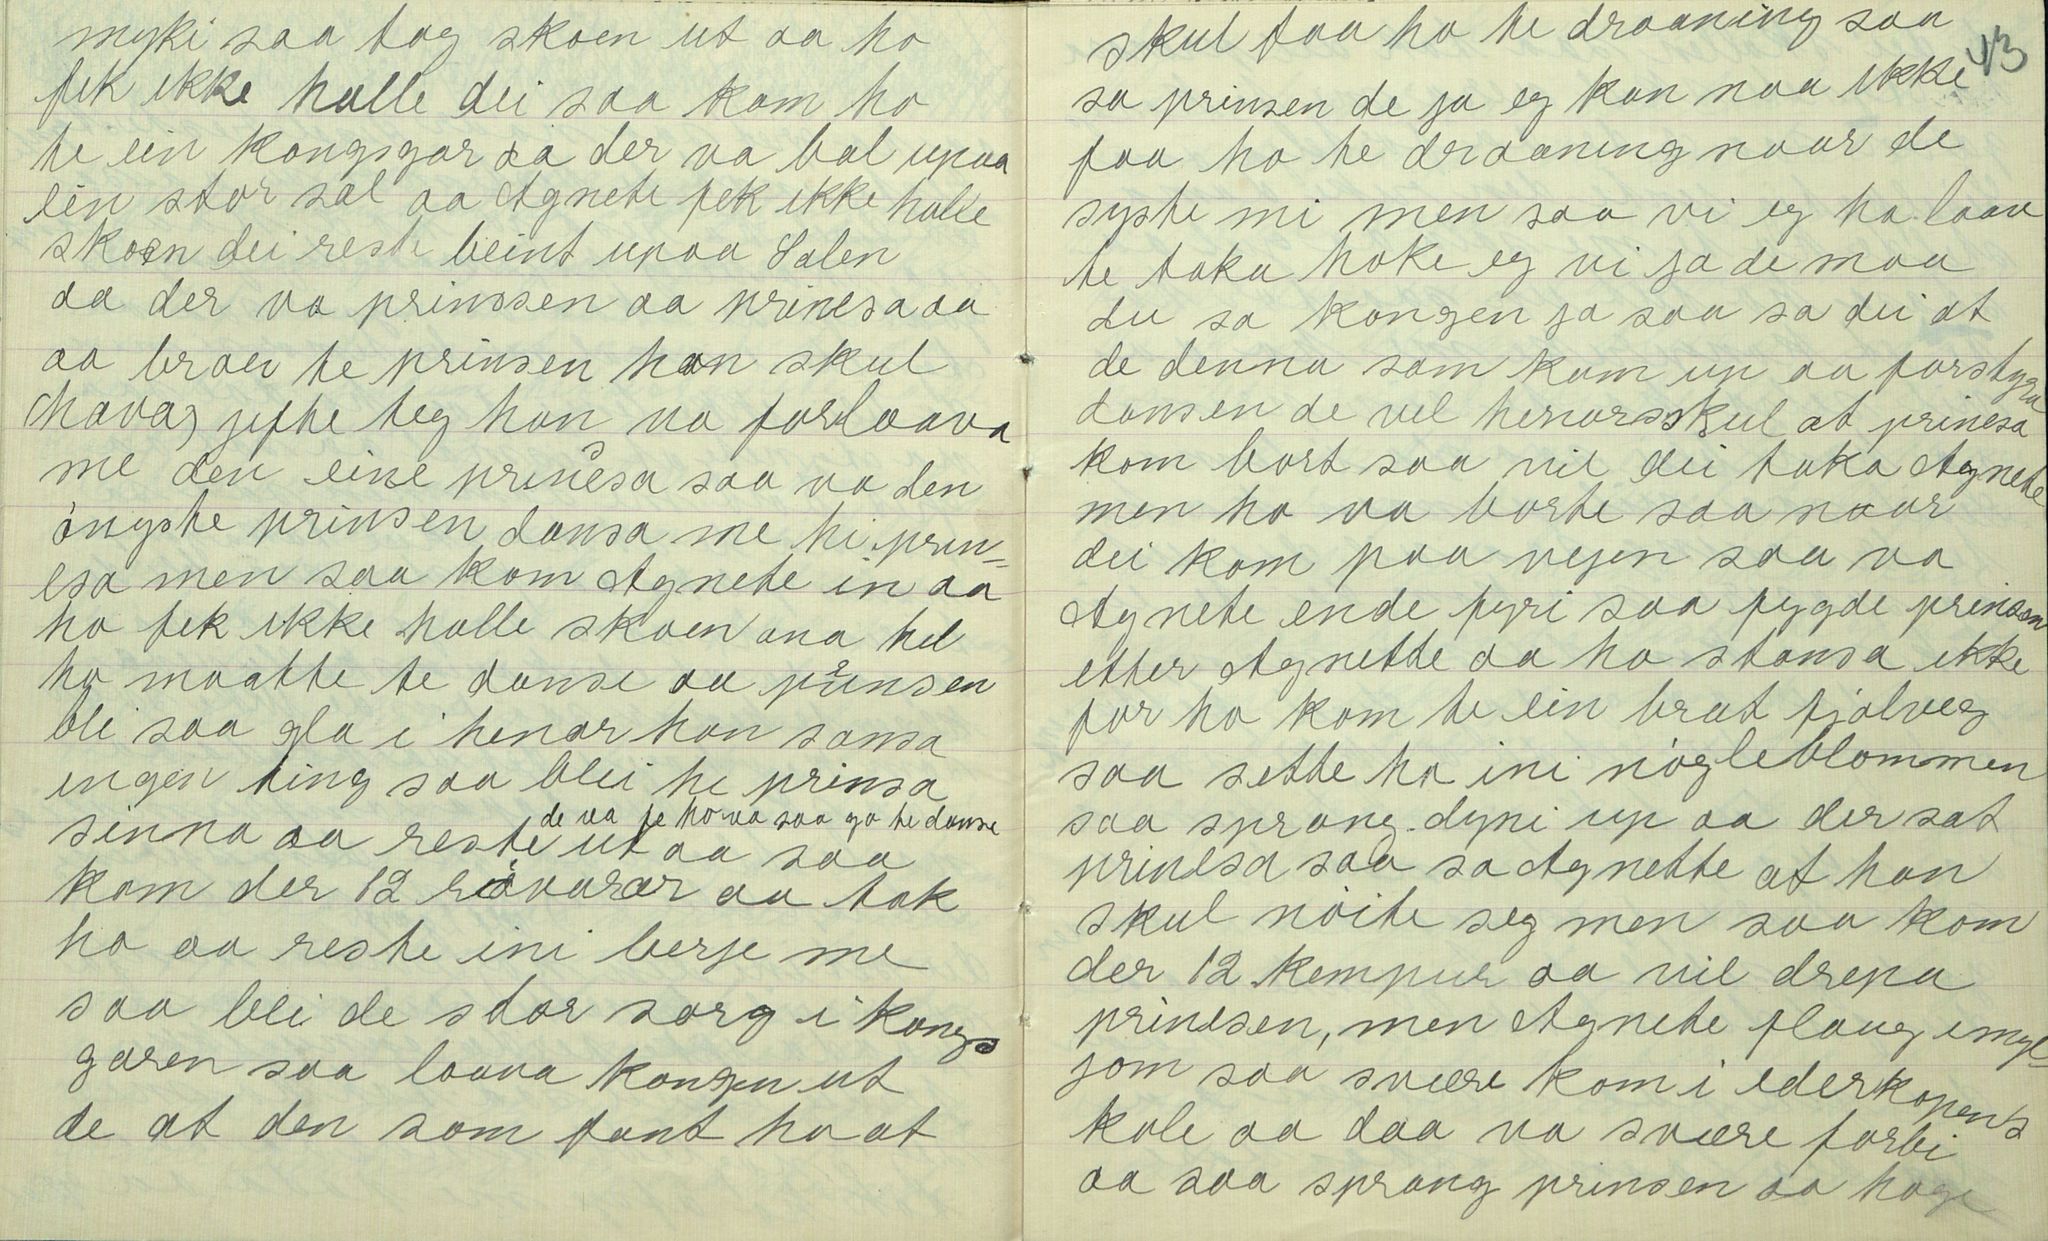 myki saa tog skoen ut aa ho
fek ikke halle dei saa kom ho
te ein kongsgar saa der va bal upaa
ein stor sal aa Agnete fek ikke halle
skoen dei reste beint upaa Salen
aa der va prinssen aa prinesa aa
aa broer te prinsen han skul
(hava) jifte teg han va forlaava
me den eine prinesa saa va den
ingste prinsen dansa me hi prin=
esa men saa kom Agnete in aa
ho fek ikke halle skoen ana hel
ho maatte te danse aa prinsen
bli saa gla i henar han sansa
ingen ting saa blei he prinsa
de va fe ho va saa go te danse
sinna aa reste ut aa saa
kom der 12 røvarar aa tok
ho aa reste ini berje me
saa blei de stor sorg i kongs
garen saa laava kongen ut
de at den som fant ho at
43
skul faa ho te draaning saa
sa prinsen de ja eg kan naa ikke
faa ho te draaning naar de
syste mi men saa vi eg ha laav
te taka hoke eg vi ja de maa
du sa kongen ja saa sa dei at
de denna som kom up aa forstyra
dansen de vel henars skul at prinesa
kom bort saa vil dei taka Agnete
men ho va borte saa naar
dei kom paa vejen saa va
Agnete ende fyri saa fygde prinsen
etter Agnette aa ho stansa ikke
for ho kom te ein brat fjølveg
saa sette ho ini nøgleblommen
saa sprang dyni up aa der sat
prinesa saa sa Agnette at han
skul nøite seg men saa kom
der 12 kempur aa vil drepa
prinesen, men Agnete flaug imyl=
jom saa svære kom i ederkopens
kole aa daa va svære forbi
aa saa sprang prinsen aa hoge